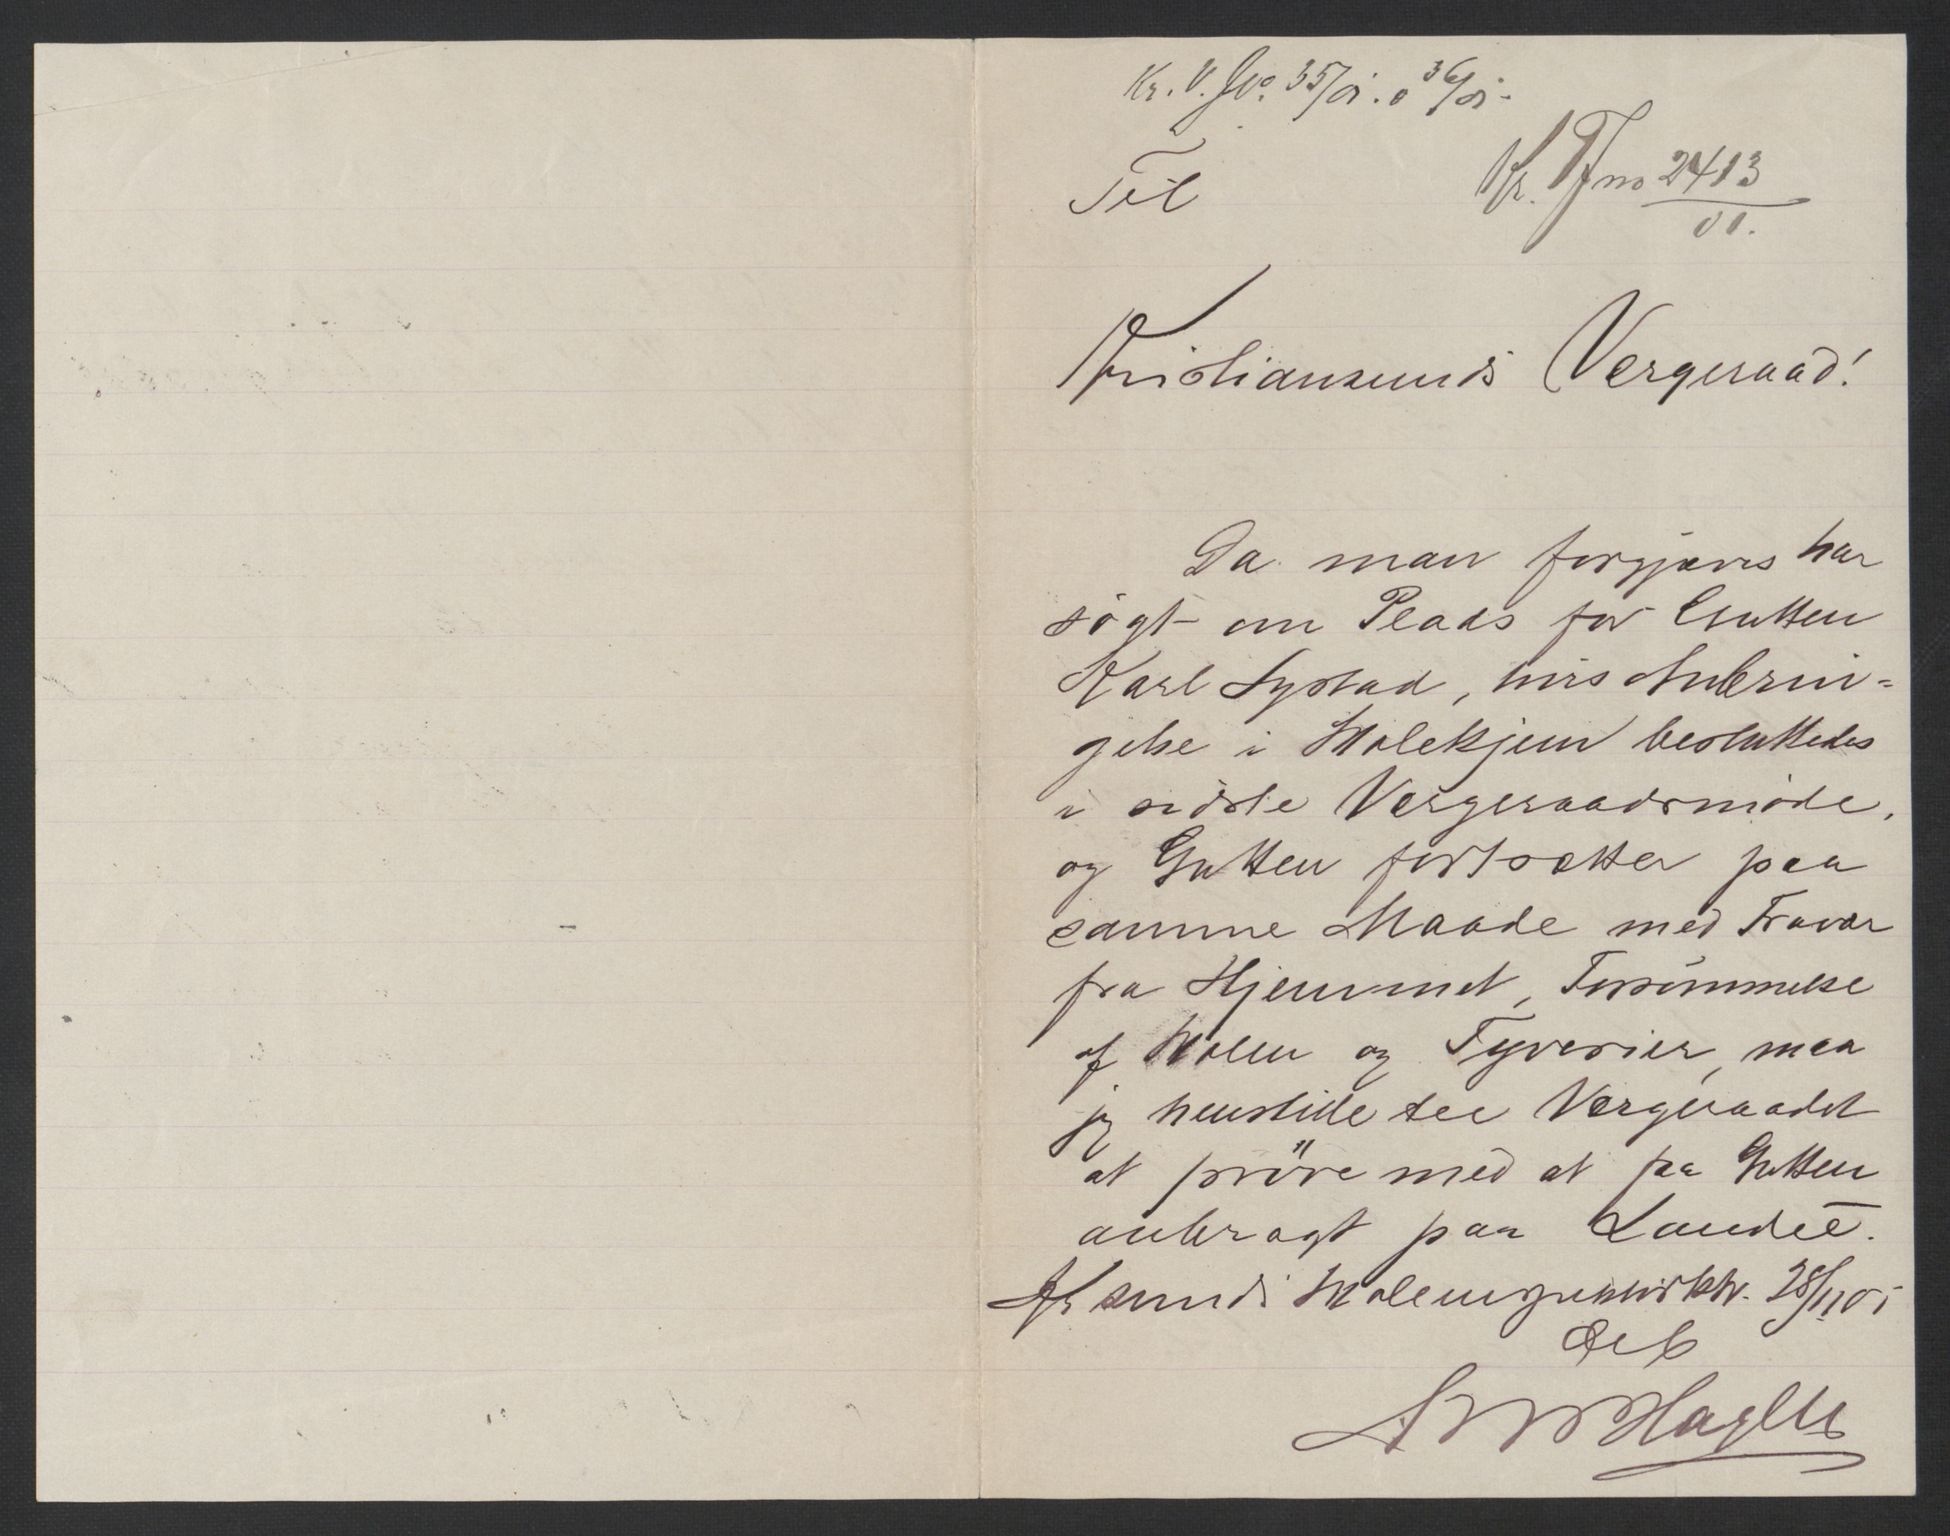 Kr. V. J.No. 35/01. o 36/01.
Kr. V J no 2413
01.
Til
Kristiansunds Vergeraad!
Da man forgjæves har
søgt om Plads for Gutten
Karl Systad, hvis Anbrin=
gelse i Skolehjem besluttedes
i sidste Vergeraadsmøde,
og Gutten fortsætter paa
samme Maade med Fravær
fra Hjemmet, Forsømmelse
af Skolen og Tyverier, maa
jeg henstille til Vergeraadet
at prøve med at faa Gutten
anbragt paa Landet.
Kr sunds Skoleinspektørktr. 28/11 01
Hagll